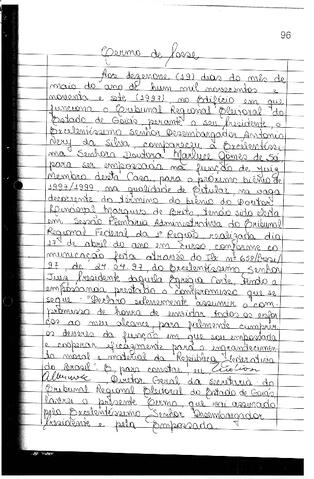 96
Termo de Posse
Aos dezenove (19) dias do mês de
maio do ano de hum mil novecentos e
noventa e sete (1997), no Edifício em que
funciona o Tribunal Regional Eleitoral do
Estado de Goiás, perante o seu Presidente, o
Excelentíssimo senhor Desembargador Antonio
Nery da Silva, compareceu a Excelentíssi
ma Senhora Doutora Marluce Gomes de Sá,
para ser empossada na função de Juiz
Membro desta Casa, para o próximo biênio de
1997/1999 na qualidade de Titular na vaga
decorrente do término do biênio do Doutor
Marques de tendo sido eleita
em Sessão Plenária Administrativa do Tribunal
Regional Federal da 1ª Região, realizada dia
17 de abril do ano em curso conforme co
municação feita através do
97 de 24.04.97, do Excelentíssimo Senhor
Juiz Presidente daquela Egrégia Corte, tendo a
empossanda prestado o compromisso que se
segue: "Declaro solenemente assumir o com-
promisso de honra de envidar todos os esfor
ços ao meu alcance, para fielmente cumprir
os deveres da função em que sou empossada
e cooperar eficazmente para o engrandecimen
to moral e material da República Federativa
do Brasil". E, para constar, eu
Diretor Geral da Secretaria do
Tribunal Regional Eleitoral do Estado de Goiás
lavrei o presente Termo, que vai assinado
pelo Excelentíssimo Senhor Desembargador
Presidente e pela Empossada.